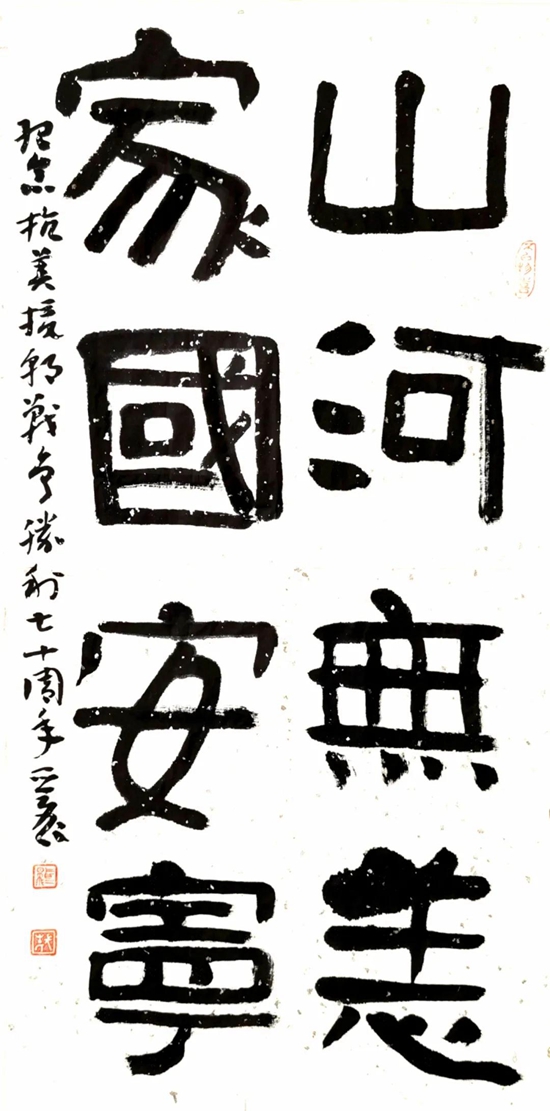 山河無恙
家國安寧
紀念抗美援朝戰爭勝利七十周年